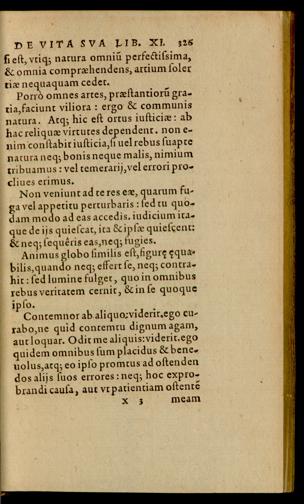 DE VITA SVA LIB. XI. 326
si est, vtiq; natura omniũ perfectissima,
& omnia compræhendens, artium soler
tiæ nequaquam cedet.
Porrò omnes artes, præstantiorũ gra-
tia, faciunt viliora: ergo & communis
natura. Atq; hic est ortus iusticiæ: ab
hac reliquæ virtutes dependent. non e-
nim constabit iusticia, si uel rebus suapte
natura neq; bonis neque malis, nimium
tribuamus: vel temerarij, vel errori pro-
cliues erimus.
Non veniunt ad te res eæ, quarum fu-
ga vel appetitu perturbaris: sed tu quo-
dam modo ad eas accedis. iudicium ita-
que de ijs quiescat, ita & ipsæ quiescent:
& neq; sequêris eas, neq; fugies.
Animus globo similis est, figurę ęqua-
bilis, quando neq; effert se, neq; contra-
hit: sed lumine fulget, quo in omnibus
rebus veritatem cernit, & in se quoque
ipso.
Contemnor ab aliquo: viderit. ego cu-
rabo, ne quid contemtu dignum agam,
aut loquar. Odit me aliquis: viderit. ego
quidem omnibus sum placidus & bene-
uolus, atq; eo ipso promtus ad ostenden
dos alijs suos errores: neq; hoc expro-
brandi causa, aut vt patientiam ostentē
X 3 meam